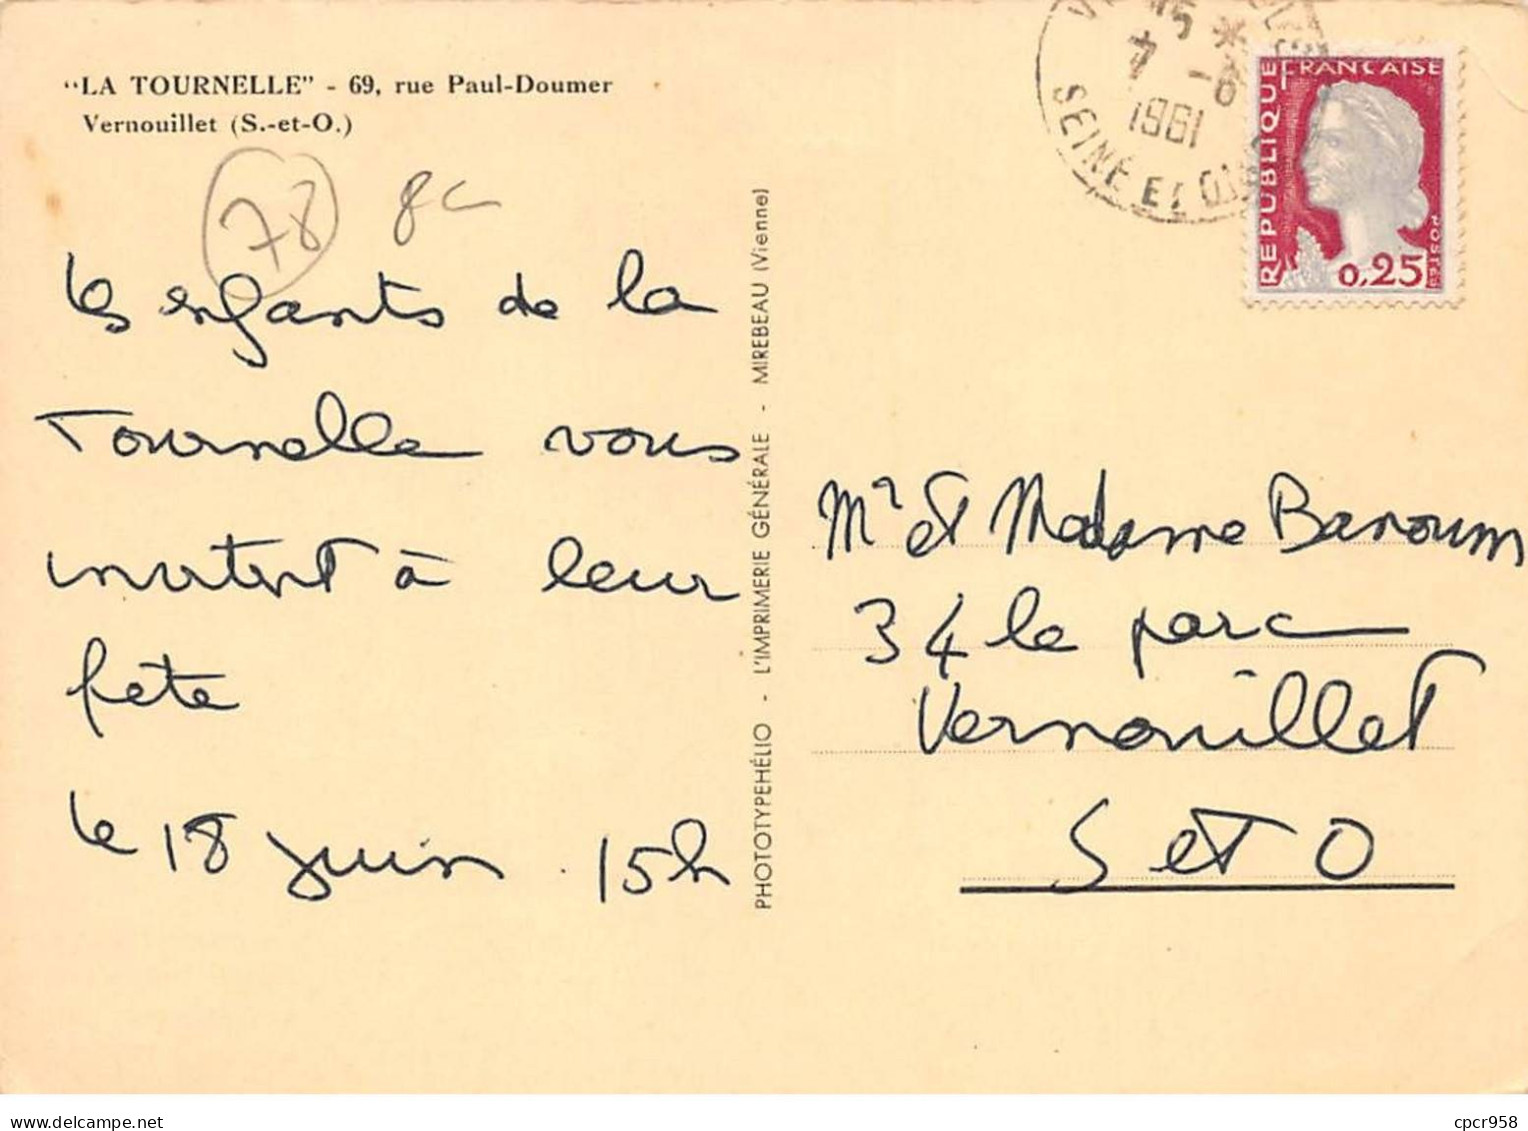 "LA TOURNELLE" - 69, rue Paul-Doumer
Vernouillet (S.-et-O.)
78
8c
Les enfants de la
Tournelle vous
invitent à leur
fête
Le 18 juin . 15h
PHOTOTYPEHÉLIO - L'IMPRIMERIE GÉNÉRALE - MIREBEAU (Vienne)
15 *
7 - 6
1961
SEINE ET OISE
REPUBLIQUE FRANCAISE
0,25
POSTES
Mr et Madame Banoum
34 le parc
Vernouillet
S et O
cpcr958